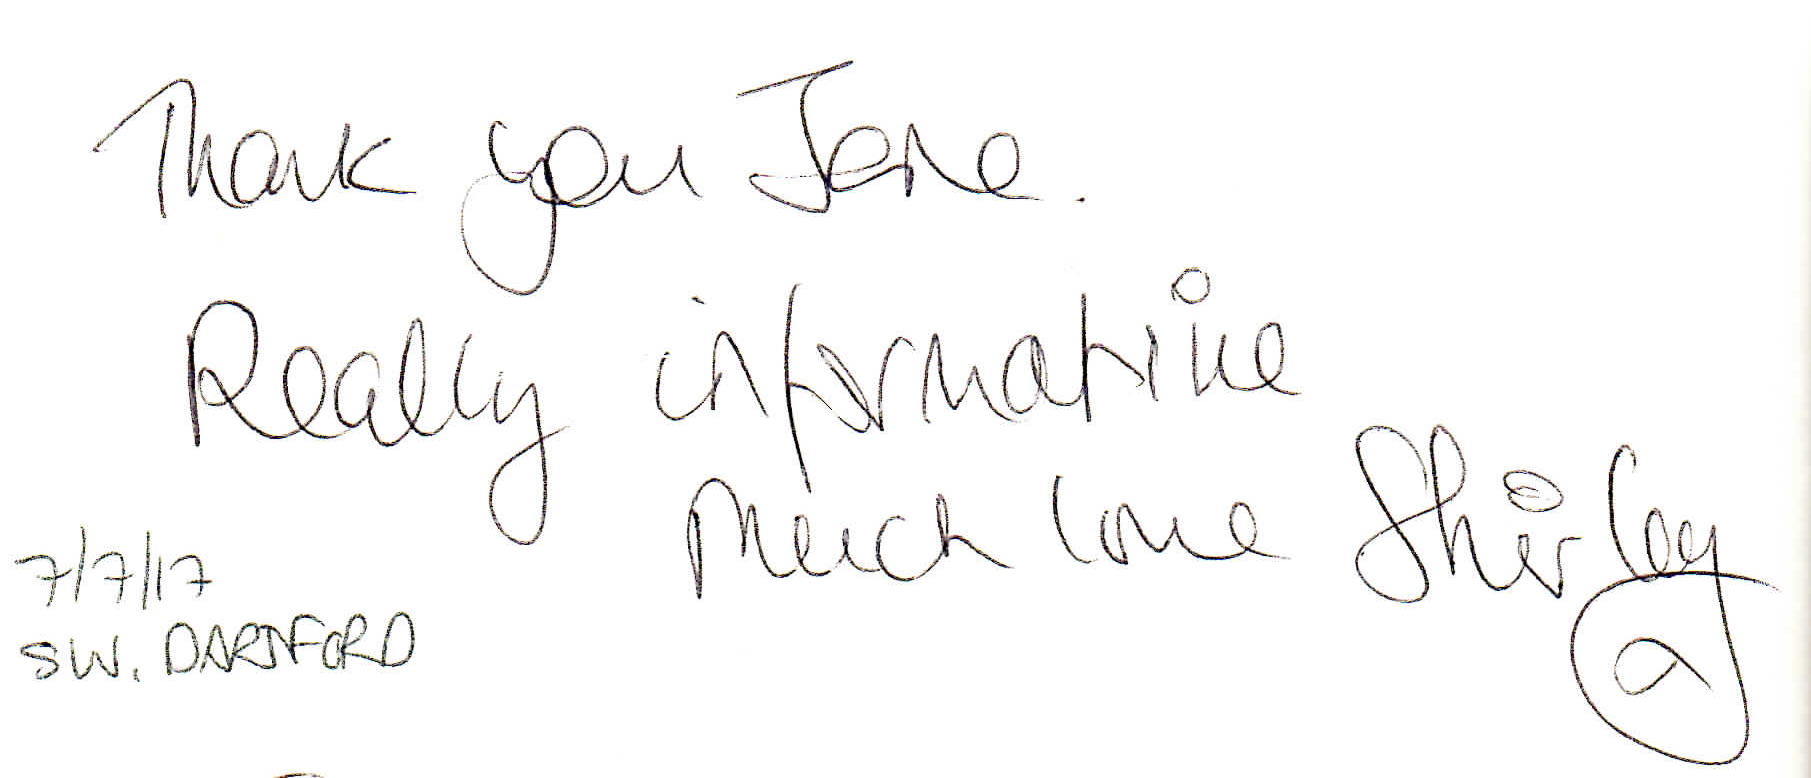 Thank you Jane.
Really informative
Much love Shirley
7/7/17
SW. DARTFORD